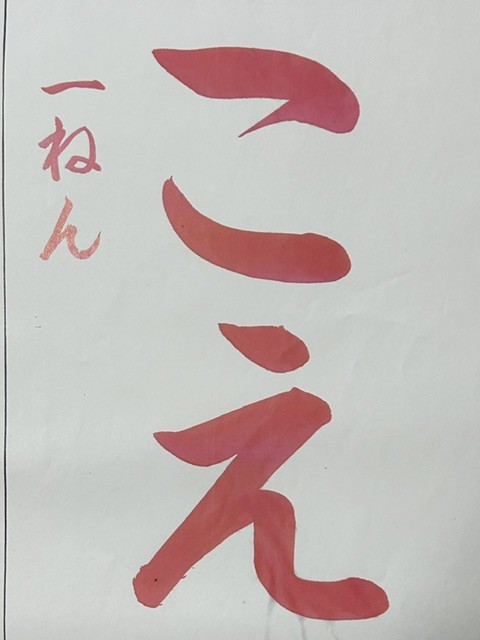 こえ
一ねん